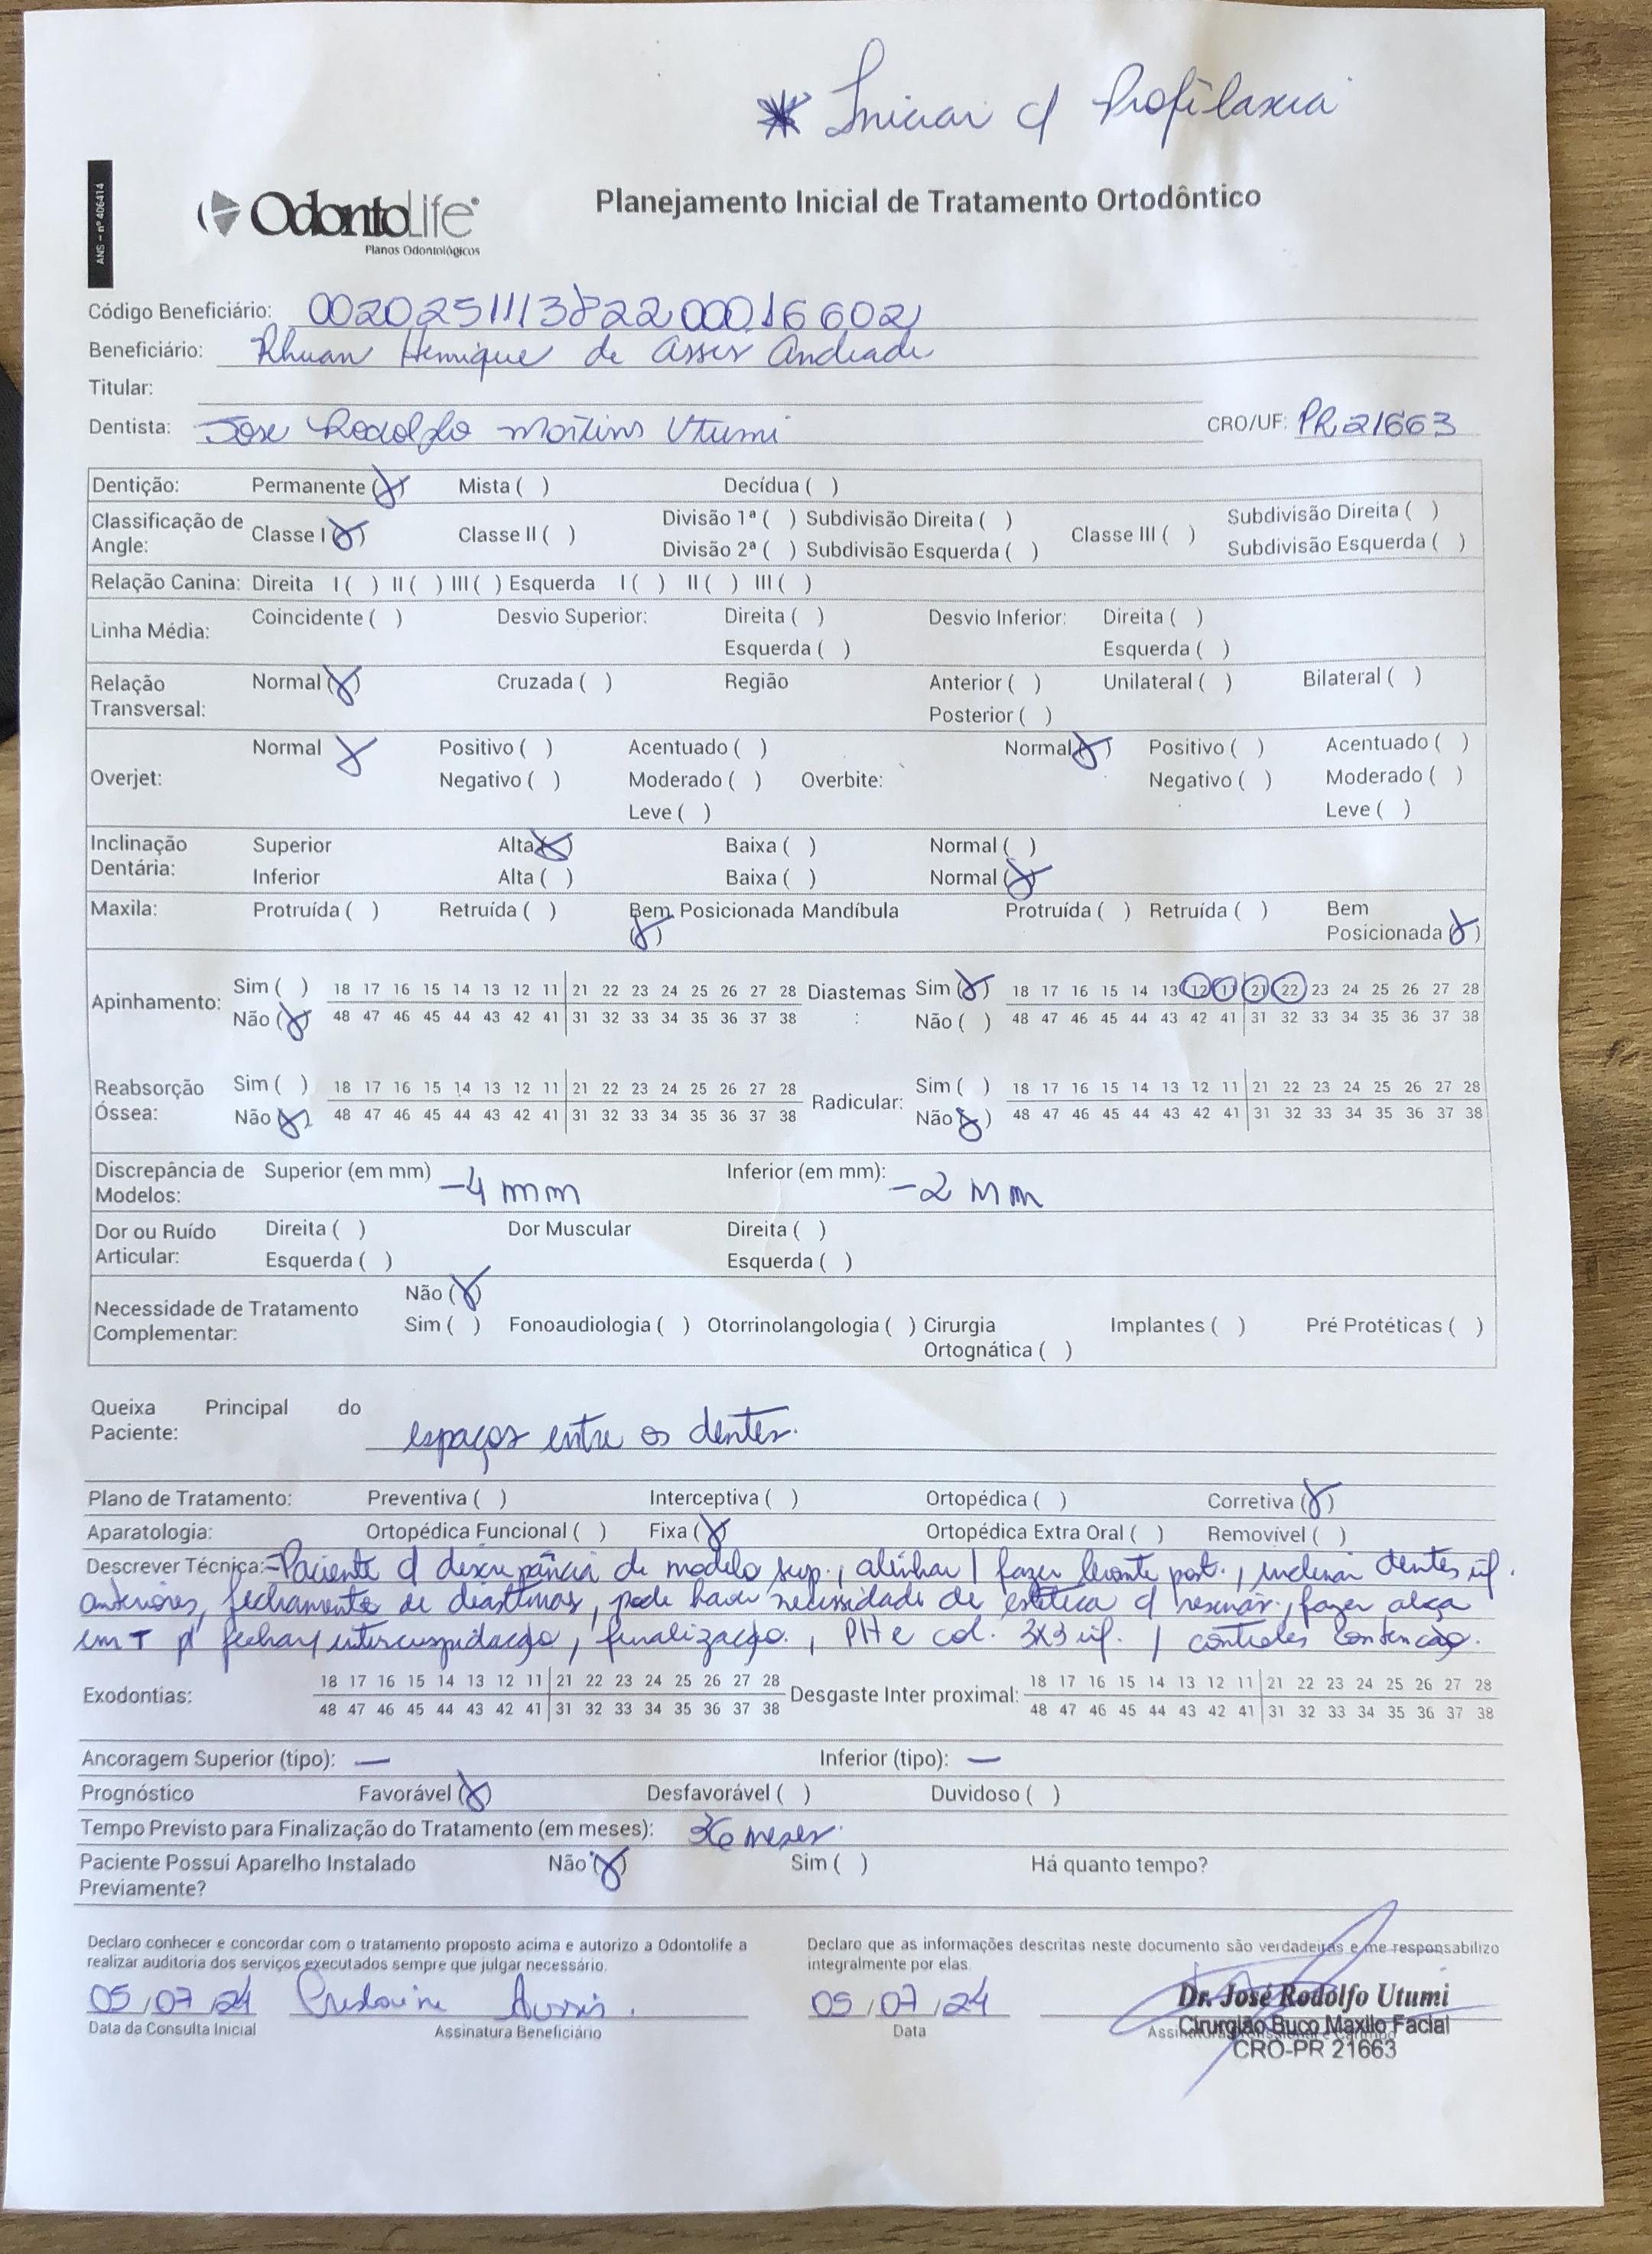 * Iniciar c/ Profilaxia
ANS - nº 406414
OdontoLife
Planos Odontológicos
Planejamento Inicial de Tratamento Ortodôntico
Código Beneficiário: 002025111382200016602
Beneficiário: Rhuan Henrique de Assis Andrade
Titular:
Dentista: Jose Rodolfo Martins Utumi CRO/UF: PR 21663
Dentição: Permanente (X) Mista ( ) Decídua ( )
Classificação de Angle: Classe I (X) Classe II ( ) Divisão 1ª ( ) Subdivisão Direita ( ) Classe III ( ) Subdivisão Direita ( )
Divisão 2ª ( ) Subdivisão Esquerda ( ) Subdivisão Esquerda ( )
Relação Canina: Direita I ( ) II ( ) III ( ) Esquerda I ( ) II ( ) III ( )
Linha Média: Coincidente ( ) Desvio Superior: Direita ( ) Desvio Inferior: Direita ( )
Esquerda ( ) Esquerda ( )
Relação Transversal: Normal (X) Cruzada ( ) Região Anterior ( ) Unilateral ( ) Bilateral ( )
Posterior ( )
Overjet: Normal X Positivo ( ) Acentuado ( ) Overbite: Normal (X) Positivo ( ) Acentuado ( )
Negativo ( ) Moderado ( ) Negativo ( ) Moderado ( )
Leve ( ) Leve ( )
Inclinação Dentária: Superior Alta (X) Baixa ( ) Normal ( )
Inferior Alta ( ) Baixa ( ) Normal (X)
Maxila: Protruída ( ) Retruída ( ) Bem Posicionada (X) Mandíbula Protruída ( ) Retruída ( ) Bem Posicionada (X)
Apinhamento: Sim ( ) 18 17 16 15 14 13 12 11 21 22 23 24 25 26 27 28 Diastemas : Sim (X) 18 17 16 15 14 13 12 11 21 22 23 24 25 26 27 28
Não (X) 48 47 46 45 44 43 42 41 31 32 33 34 35 36 37 38 Não ( ) 48 47 46 45 44 43 42 41 31 32 33 34 35 36 37 38
Reabsorção Óssea: Sim ( ) 18 17 16 15 14 13 12 11 21 22 23 24 25 26 27 28 Radicular: Sim ( ) 18 17 16 15 14 13 12 11 21 22 23 24 25 26 27 28
Não (X) 48 47 46 45 44 43 42 41 31 32 33 34 35 36 37 38 Não (X) 48 47 46 45 44 43 42 41 31 32 33 34 35 36 37 38
Discrepância de Modelos: Superior (em mm) -4 mm Inferior (em mm): -2 mm
Dor ou Ruído Articular: Direita ( ) Dor Muscular Direita ( )
Esquerda ( ) Esquerda ( )
Necessidade de Tratamento Complementar: Não (X)
Sim ( ) Fonoaudiologia ( ) Otorrinolangologia ( ) Cirurgia Ortognática ( ) Implantes ( ) Pré Protéticas ( )
Queixa Principal do Paciente: espaços entre os dentes.
Plano de Tratamento: Preventiva ( ) Interceptiva ( ) Ortopédica ( ) Corretiva (X)
Aparatologia: Ortopédica Funcional ( ) Fixa (X) Ortopédica Extra Oral ( ) Removível ( )
Descrever Técnica: - Paciente c/ discrepância de modelo sup., alinhar / fazer levante post., inclinar dentes inf.
anteriores, fechamento de diastemas, pode haver necessidade de estética c/ resinas, fazer alça
em T p/ fechar/ intercuspidação, finalização, PHE col. 3x3 inf. / controles contenção.
Exodontias: 18 17 16 15 14 13 12 11 21 22 23 24 25 26 27 28 Desgaste Inter proximal: 18 17 16 15 14 13 12 11 21 22 23 24 25 26 27 28
48 47 46 45 44 43 42 41 31 32 33 34 35 36 37 38 48 47 46 45 44 43 42 41 31 32 33 34 35 36 37 38
Ancoragem Superior (tipo): — Inferior (tipo): —
Prognóstico Favorável (X) Desfavorável ( ) Duvidoso ( )
Tempo Previsto para Finalização do Tratamento (em meses): 36 meses.
Paciente Possui Aparelho Instalado Previamente? Não (X) Sim ( ) Há quanto tempo?
Declaro conhecer e concordar com o tratamento proposto acima e autorizo a Odontolife a
realizar auditoria dos serviços executados sempre que julgar necessário.
Declaro que as informações descritas neste documento são verdadeiras e me responsabilizo
integralmente por elas.
05/07/24 05/07/24
Data da Consulta Inicial Assinatura Beneficiário Data
Dr. José Rodolfo Utumi
Cirurgião Buco Maxilo Facial
CRO-PR 21663